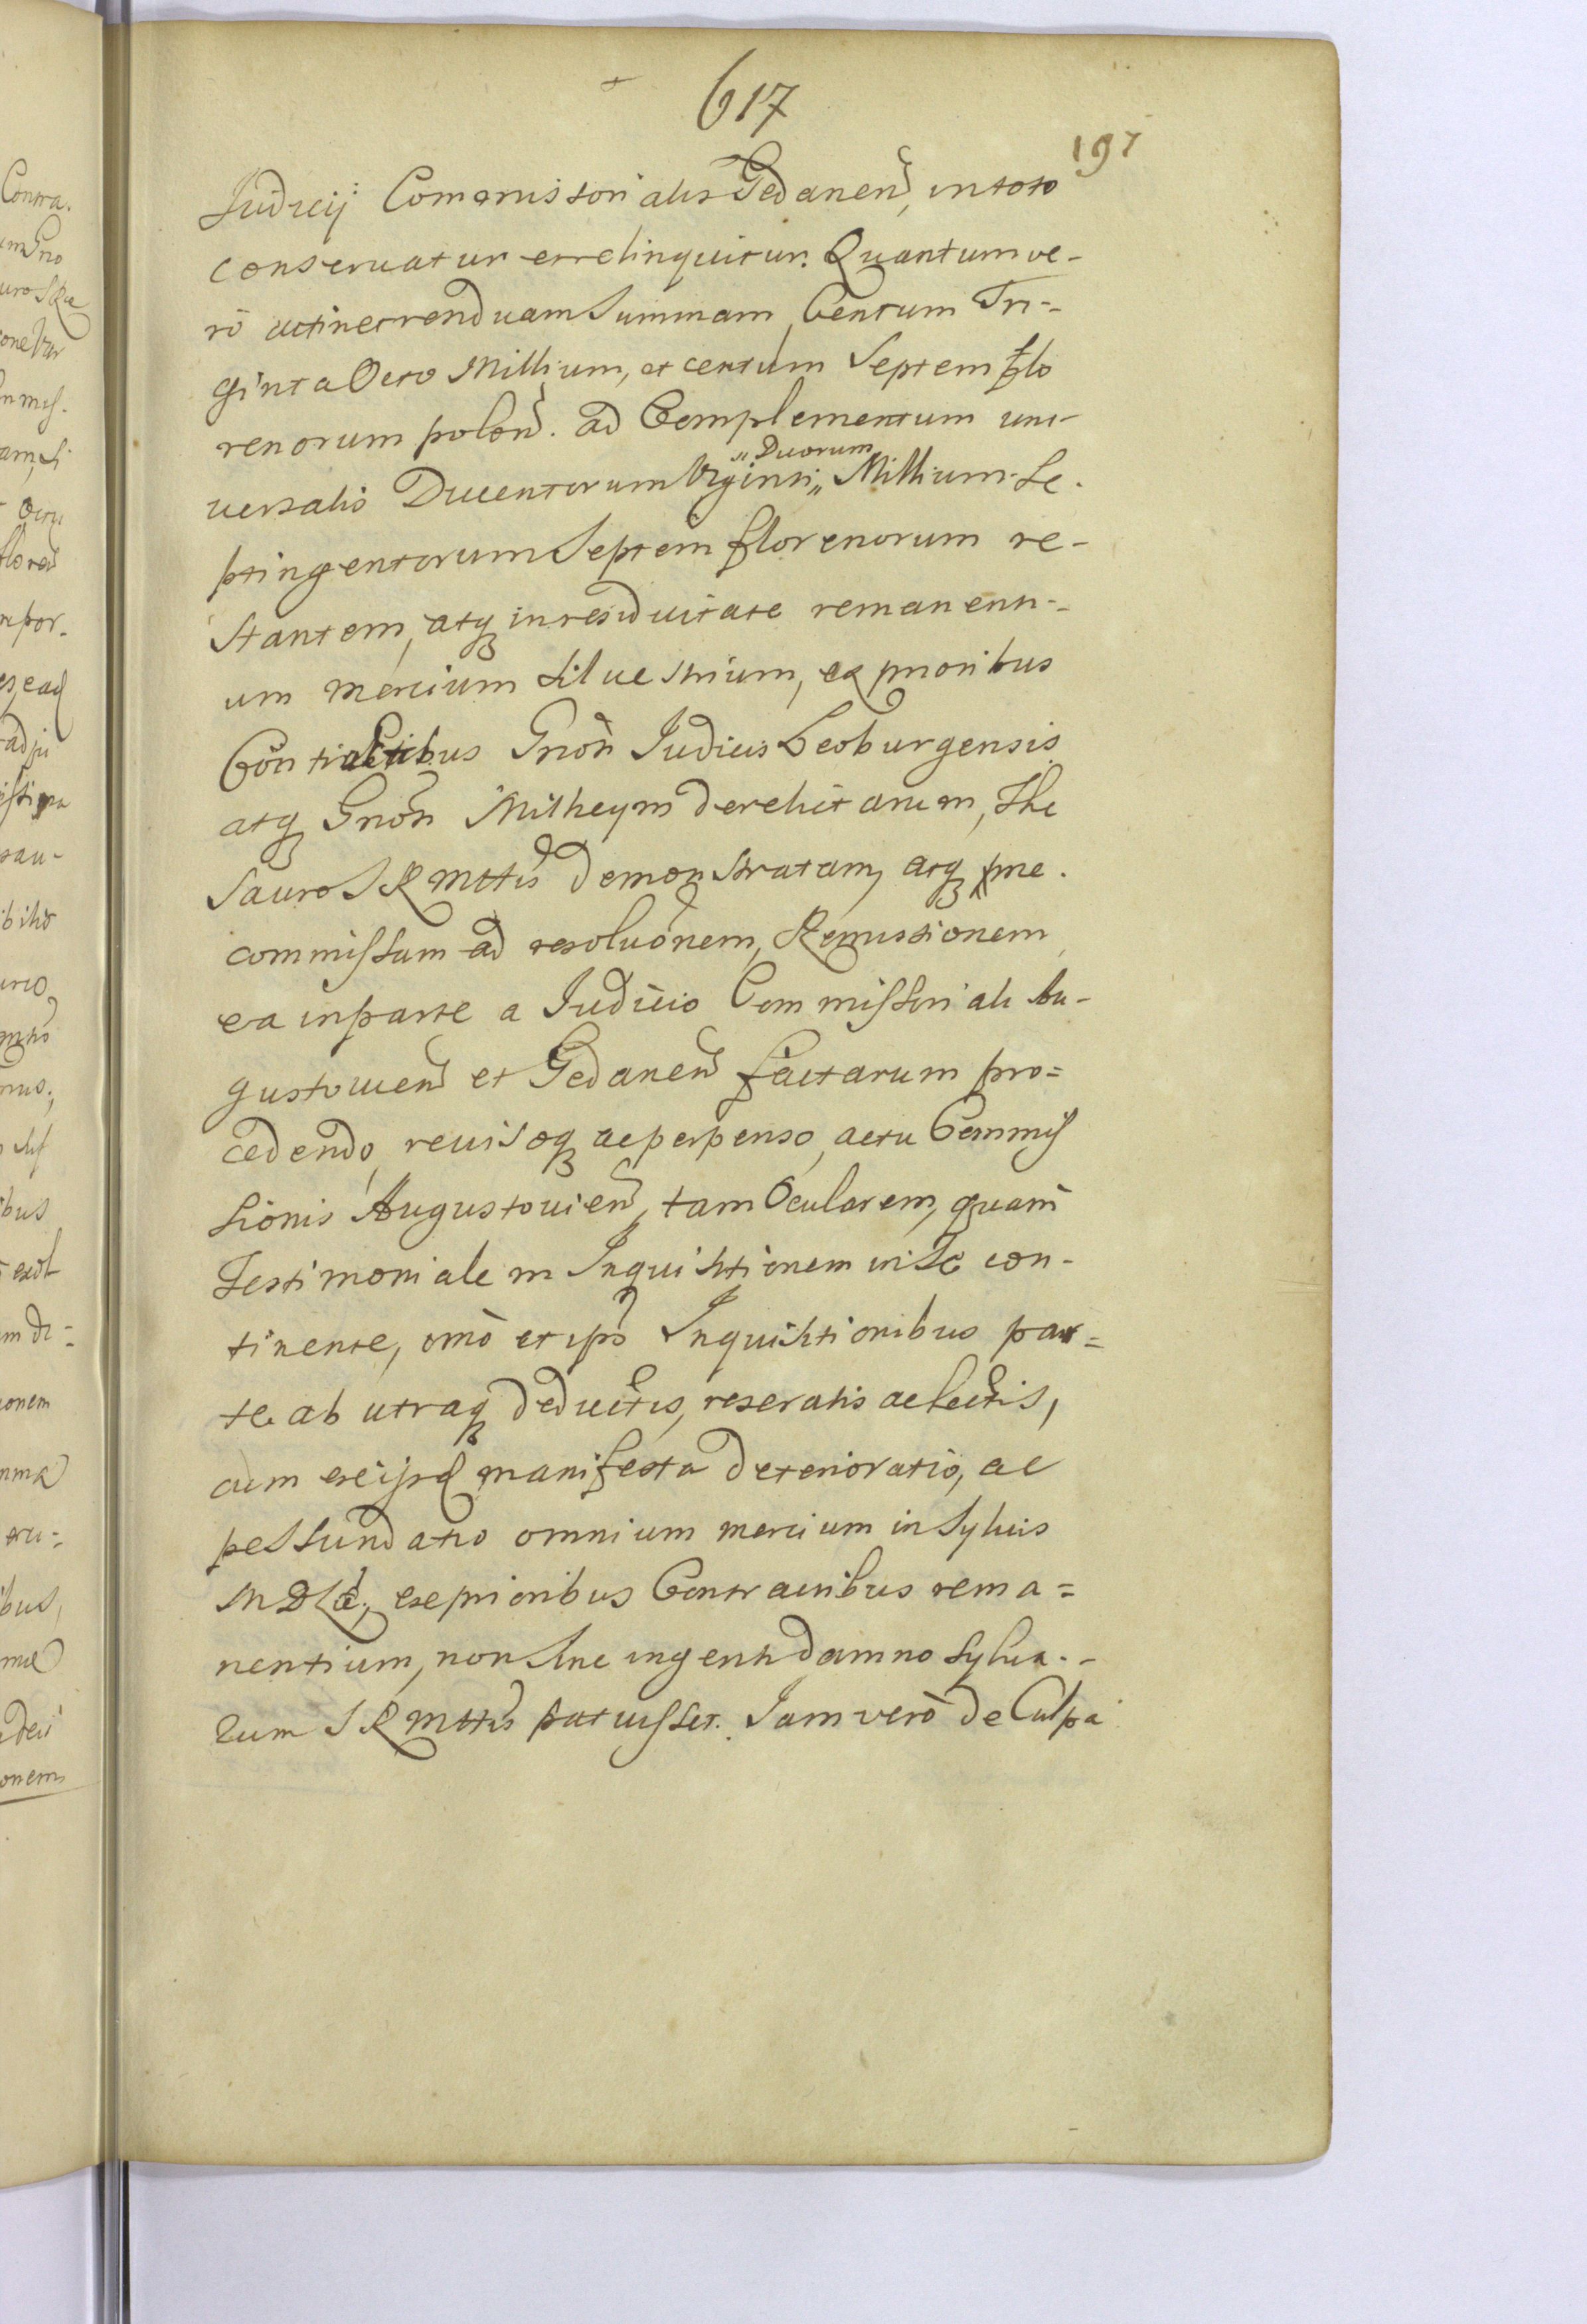 617
197
Judicij Commissorialis Gedanen, in toto
conseruatur et relinquitur. Quantum ve-
rò attinet renduam Summam Centum Tri-
ginta Octo Millium, et centum Septem flo
renorum polon. ad Complementum uni-
"Duorum
uersalis Ducentorum Viginti" Millium Se.
ptingentorum Septem florenorum re-
stantem, atq in residuitate remanenti-
um mercium Siluestrium, ex prioribus
Contractibus Gnōn Iudicis Leoburgensis
atq Gnōn Milheym derelictarum, The
Sauro S R Mttis demonstratam, atq
commissum ad resoluōnem, Remissionem
ea in parte a Iudicio Commissoriali Au-
gustouien et Gedanen factarum pro=
cedendo, reuisoq ac perpenso, actu Commis
sionis Augustouien, tam Ocularem, quam
Testimonialem Inquisitionem in Se con-
tinente, omō et ips Inquisitionibus par=
te ab utraq deductis, reseratis ac lectis,
cum ex ijsd manifesta deterioratio, ac
pessundatio omnium mercium in Syluis
exprioribus Contractibus rema=
nentium, non Sine ingenti damno Sylua-
rum S R Mttis patuisset. Iam verò de Culpa